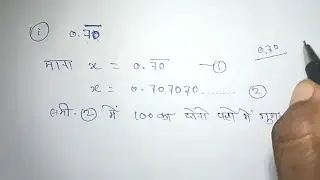 ① 0.7̅0̅
0.70
माना x = 0.7̅0̅ —①
x = 0.707070......... ②
समी. ② में 100 का दोनों पक्षों में गुणा